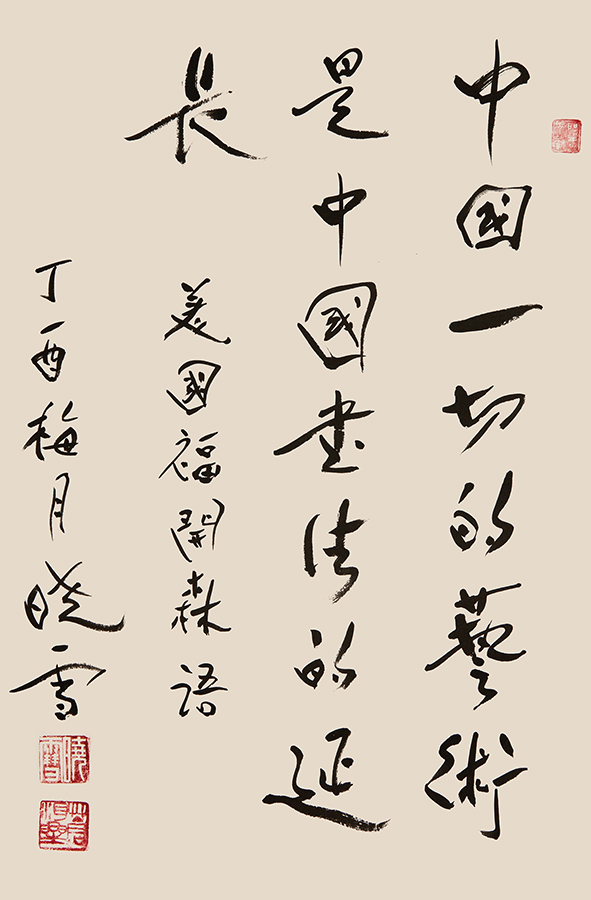 中國一切的藝術
是中國書法的延
長
美國福開森語
丁酉梅月曉雪
曉雪